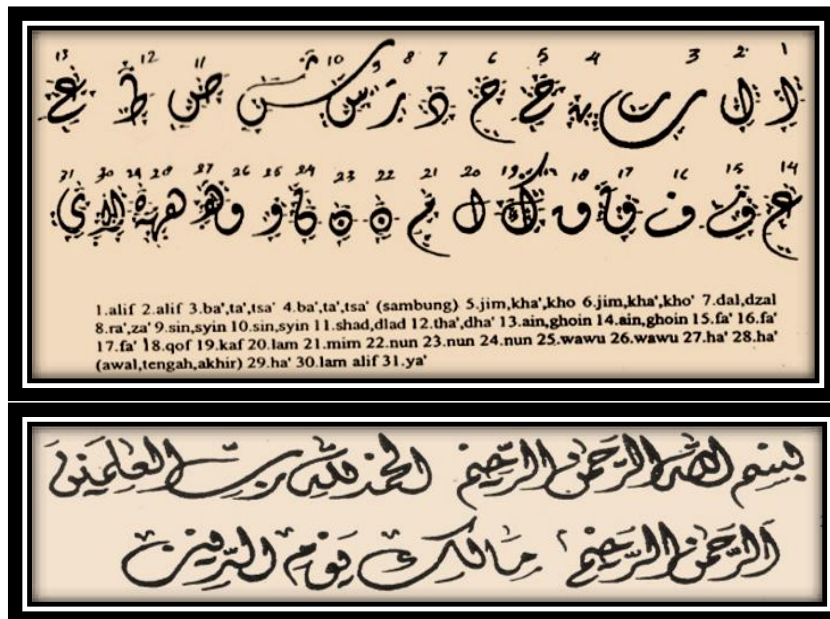 1 2 3 4 5 6 7 8 10 11 12 13
14 15 16 17 18 19 20 21 22 23 24 25 26 27 28 29 30 31
1.alif 2.alif 3.ba',ta',tsa' 4.ba',ta',tsa' (sambung) 5.jim,kha',kho 6.jim,kha',kho' 7.dal,dzal
8.ra',za' 9.sin,syin 10.sin,syin 11.shad,dlad 12.tha',dha' 13.ain,ghoin 14.ain,ghoin 15.fa' 16.fa'
17.fa' 18.qof 19.kaf 20.lam 21.mim 22.nun 23.nun 24.nun 25.wawu 26.wawu 27.ha' 28.ha'
(awal,tengah,akhir) 29.ha' 30.lam alif 31.ya'
بِسْمِ اللهِ الرَّحْمنِ الرَّحِيْمِ الْحَمْدُ لِلّهِ رَبِّ الْعلَمِيْنَ
اَلرَّحْمنِ الرَّحِيْمِ مَالِكِ يَوْمِ الدِّيْنِ